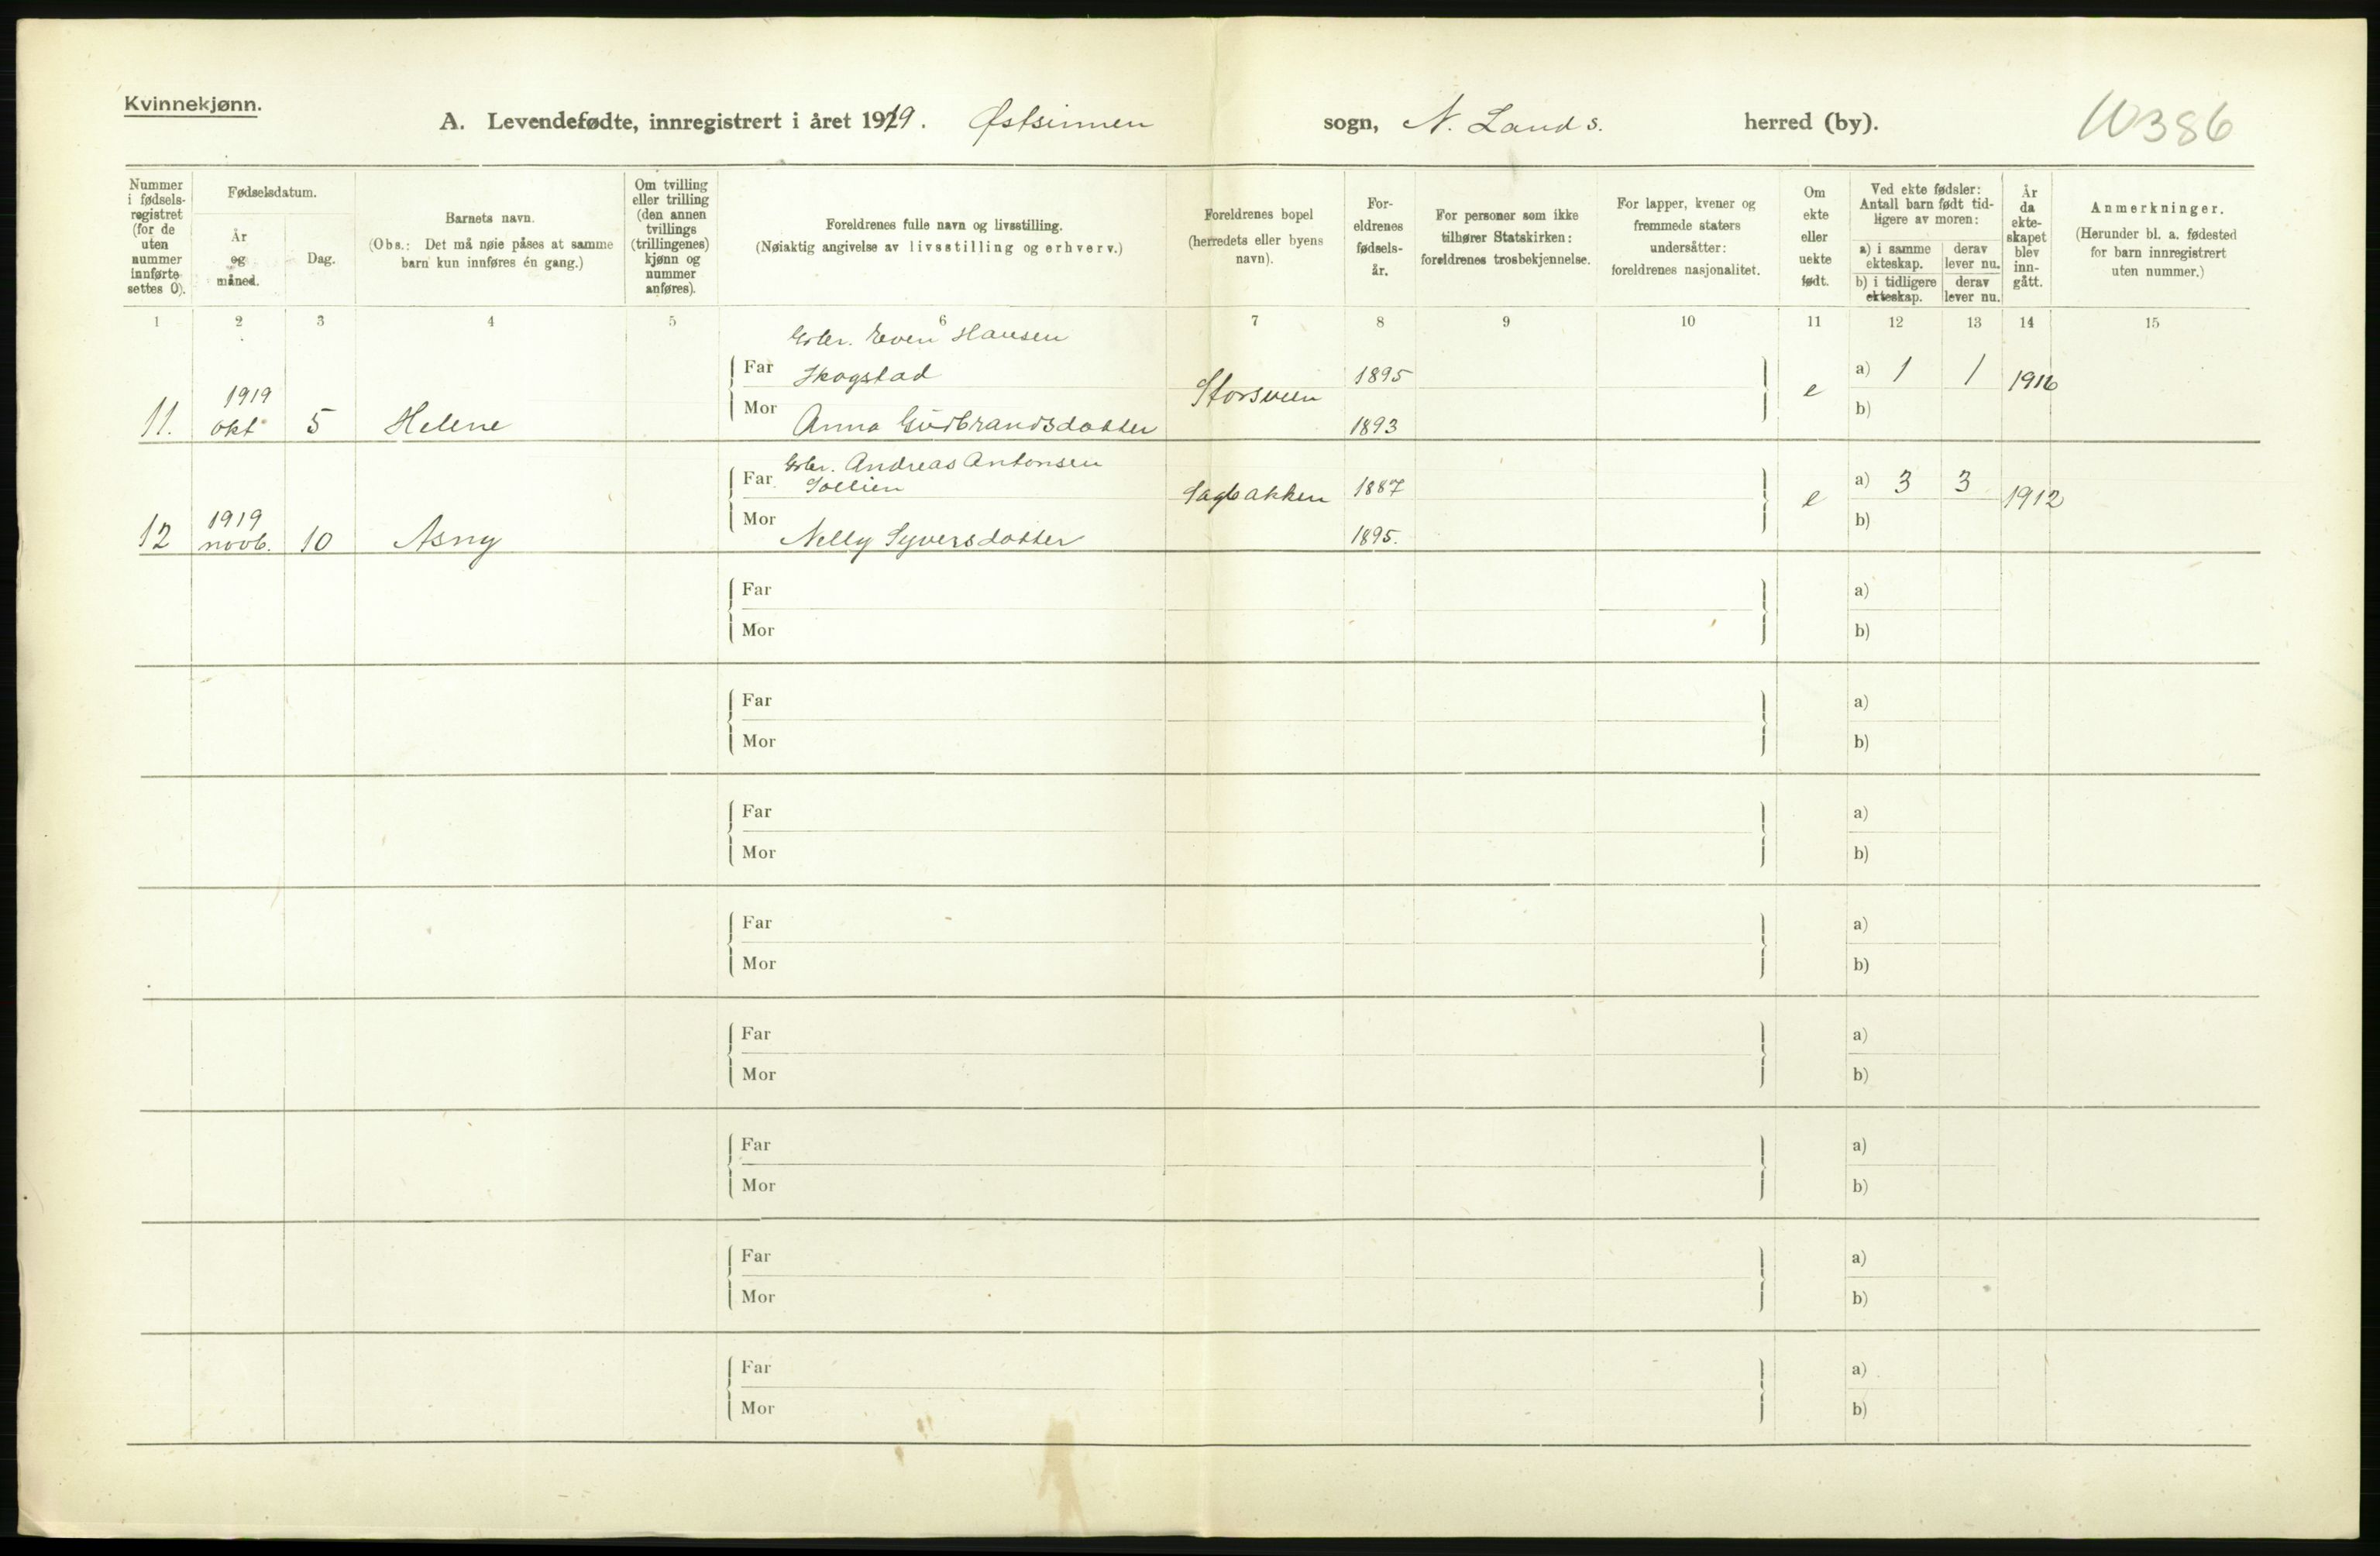 Kvinnekjønn.
A. Levendefødte, innregistrert i året 1919. Østsinnen sogn, N. Lands. herred (by). 10386
Nummer i fødsels-registret (for de uten nummer innførte settes 0).
Fødselsdatum.
År og måned.
Dag.
Barnets navn.
(Obs.: Det må nøie påses at samme barn kun innføres én gang.)
Om tvilling eller trilling (den annen tvillings (trillingenes) kjønn og nummer anføres).
Foreldrenes fulle navn og livsstilling.
(Nøiaktig angivelse av livsstilling og erhverv.)
Foreldrenes bopel (herredets eller byens navn).
For-eldrenes fødsels-år.
For personer som ikke tilhører Statskirken: foreldrenes trosbekjennelse.
For lapper, kvener og fremmede staters undersåtter: foreldrenes nasjonalitet.
Om ekte eller uekte født.
Ved ekte fødsler: Antall barn født tid-ligere av moren:
a) i samme ekteskap.
derav lever nu.
b) i tidligere ekteskap.
derav lever nu.
År da ekte-skapet blev inn-gått.
Anmerkninger.
(Herunder bl. a. fødested for barn innregistrert uten nummer.)
1 2 3 4 5 6 7 8 9 10 11 12 13 14 15
Even Hansen
Far Skogstad 1895 a) 1 1 1916
11. 1919 okt 5 Helene Mor Anna Gudbrandsdatter Storsveen 1893 e b)
Andreas Antonsen
Far Sollien 1887 a) 3 3 1912
12 1919 novb. 10 Asny Mor Nelly Syversdatter Sagbakken 1895. e b)
Far a)
Mor b)
Far a)
Mor b)
Far a)
Mor b)
Far a)
Mor b)
Far a)
Mor b)
Far a)
Mor b)
Far a)
Mor b)
Far a)
Mor b)